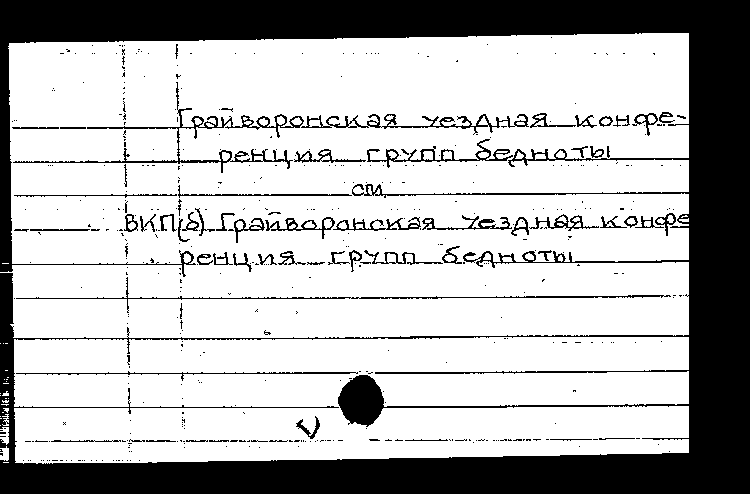 Грайворонская уездная конфе-
ренция групп бедноты
см.
ВКП(б) Грайворонская уездная конфе
ренция групп бедноты.
V